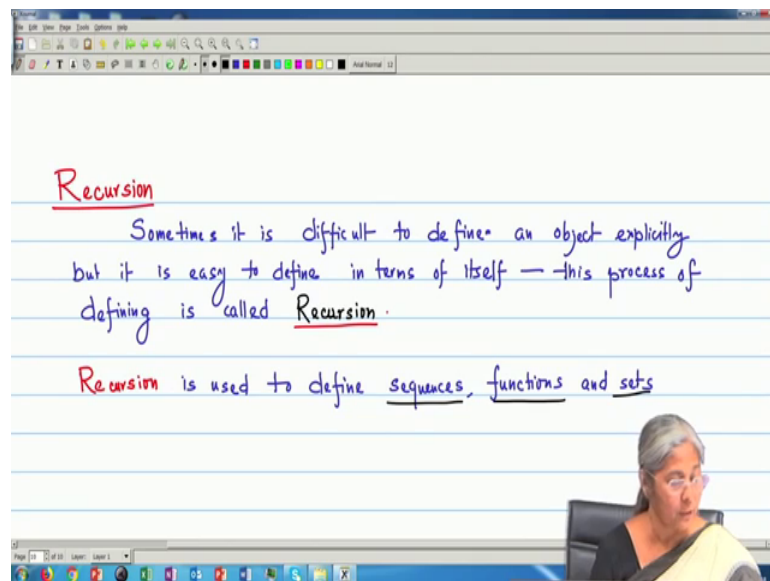 File Edit View Page Tools Options Help
Arial Normal 12
Recursion
Sometimes it is difficult to define an object explicitly
but it is easy to define in terms of itself — this process of
defining is called Recursion.
Recursion is used to define sequences, functions and sets
Page 18 of 18 Layer: Layer 1